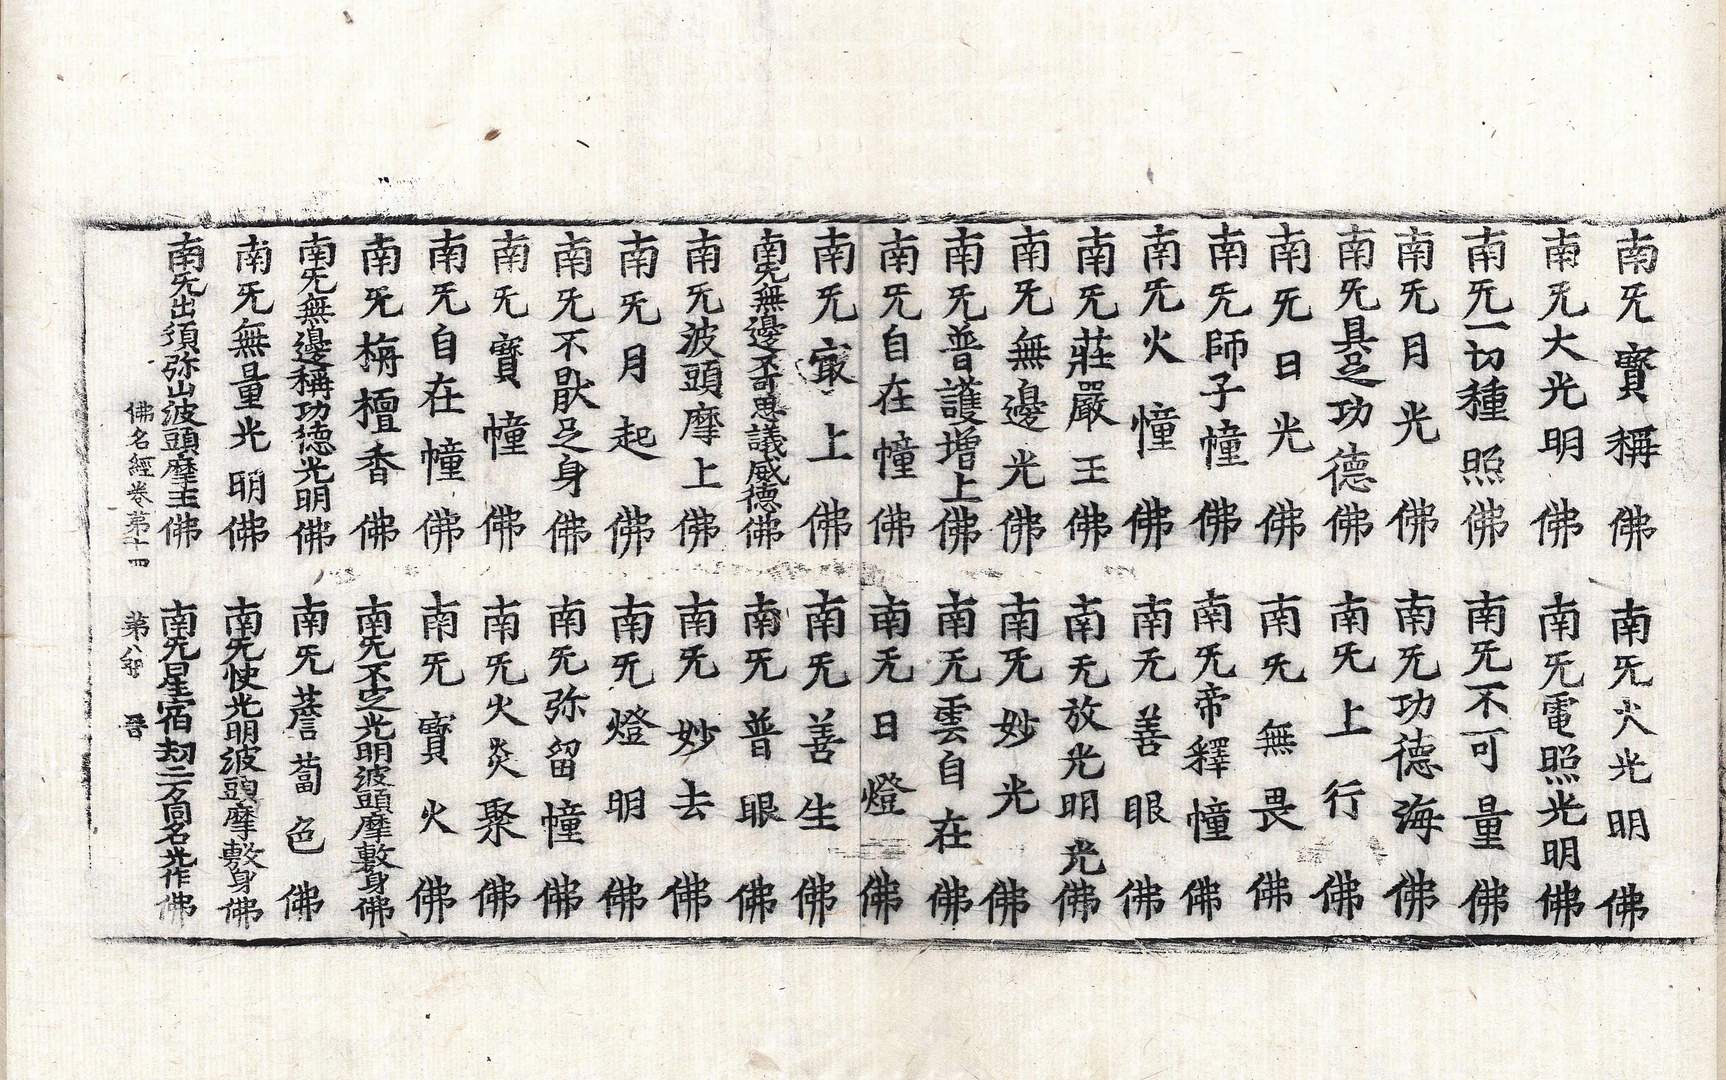 南无寶稱佛　南无火光明佛
南无大光明佛　南无電照光明佛
南无一切種照佛　南无不可量佛
南无月光佛　南无功德海佛
南无具足功德佛　南无上行佛
南无日光佛　南无無畏佛
南无師子幢佛　南无帝釋幢佛
南无火幢佛　南无善眼佛
南无莊嚴王佛　南无放光明光佛
南无無邊光佛　南无妙光佛
南无普護增上佛　南无雲自在佛
南无自在幢佛　南无日燈佛
南无冣上佛　南无善生佛
南无無邊不可思議威德佛　南无普眼佛
南无波頭摩上佛　南无妙去佛
南无月起佛　南无燈明佛
南无不猒足身佛　南无弥留幢佛
南无寶幢佛　南无火炎聚佛
南无自在幢佛　南无寶火佛
南无栴檀香佛　南无不定光明波頭摩敷身佛
南无無邊稱功德光明佛　南无薝蔔色佛
南无無量光明佛　南无快光明波頭摩敷身佛
南无出須弥山波頭摩王佛　南无星宿劫二万同名光作佛
佛名經卷第十四　第八張